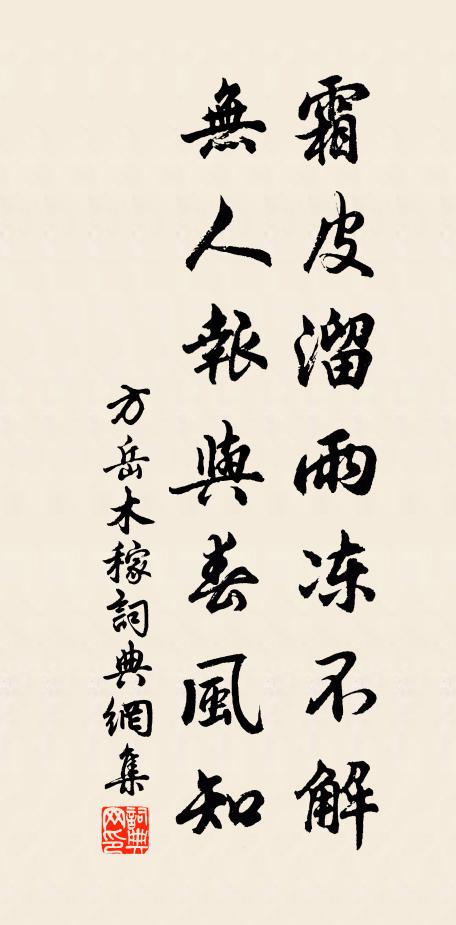 霜皮溜雨冻不解
無人報與春風知
方岳木稼詞典網集
詞典网印